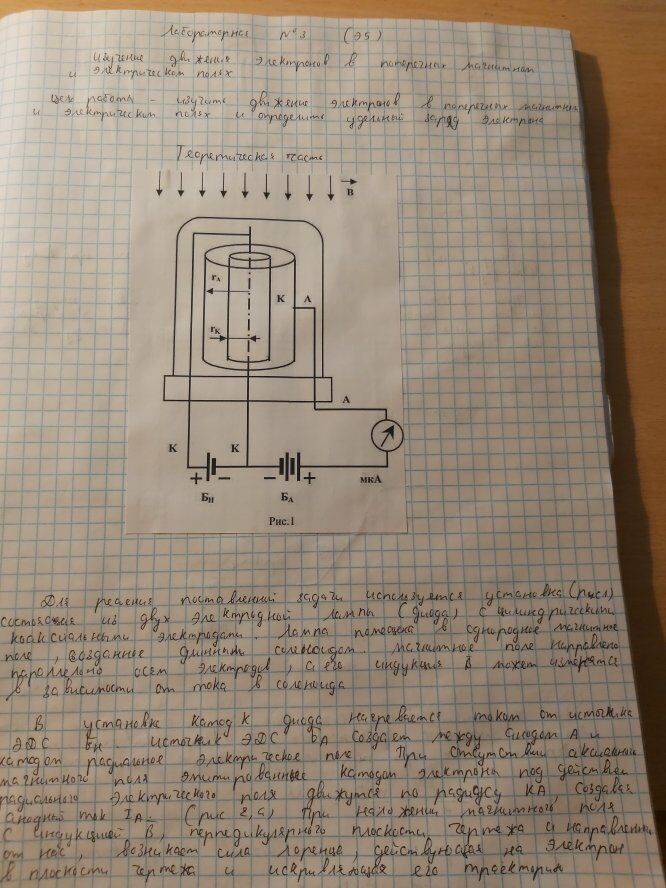 Лабораторная №3 (Э5)
Изучение движения электронов в поперечных магнитном
и электрическом полях
Цель работы - изучить движение электронов в поперечных магнитном
и электрическом полях и определить удельный заряд электрона
Теоретическая часть
B
rА
K
A
rК
A
K
K
+
−
−
+
мкА
БН
БА
Рис.1
Для решения поставленной задачи используется установка (рис1)
состоящая из двух электродной лампы (диода) с цилиндрическими
коаксиальными электродами. Лампа помещена в однородное магнитное
поле, созданное длинным соленоидом. магнитное поле направлено
параллельно осям электродов, а его индукция B может изменятся
в зависимости от тока в соленоида
В установке катод К диода нагревается током от источника
ЭДС БН источник ЭДС БА создает между анодом А и
катодом радиальное электрическое поле. При отсутствии аксиального
магнитного поля эмитированные катодом электроны под действием
радиального электрического поля движутся по радиусу КА, создавая
анодный ток IА. (рис 2,а) При наложении магнитного поля
с индукцией B, перпедикулярного плоскости чертежа и направленного
от нас, возникает сила лоренца, действующая на электрон
в плоскости чертежа и искривляющая его траекторию